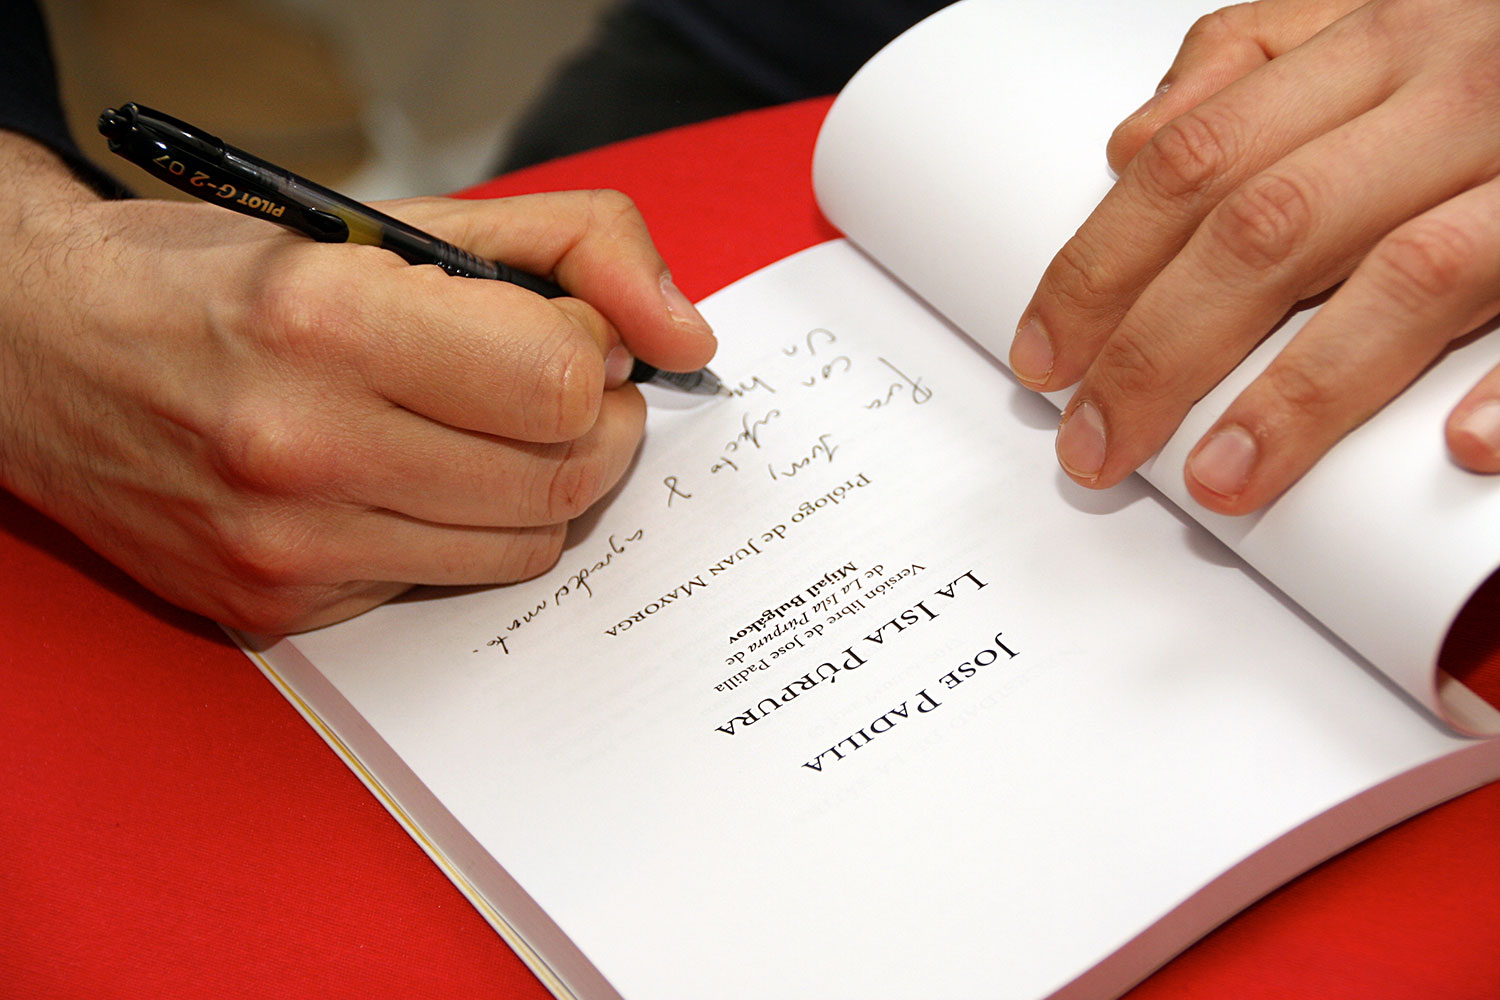 PILOT G-2 07
JOSE PADILLA
LA ISLA PÚRPURA
Versión libre de Jose Padilla
de La Isla Púrpura de
Mijaíl Bulgákov
Prólogo de JUAN MAYORGA
Para Juan,
con afecto y agradecimiento.
Un